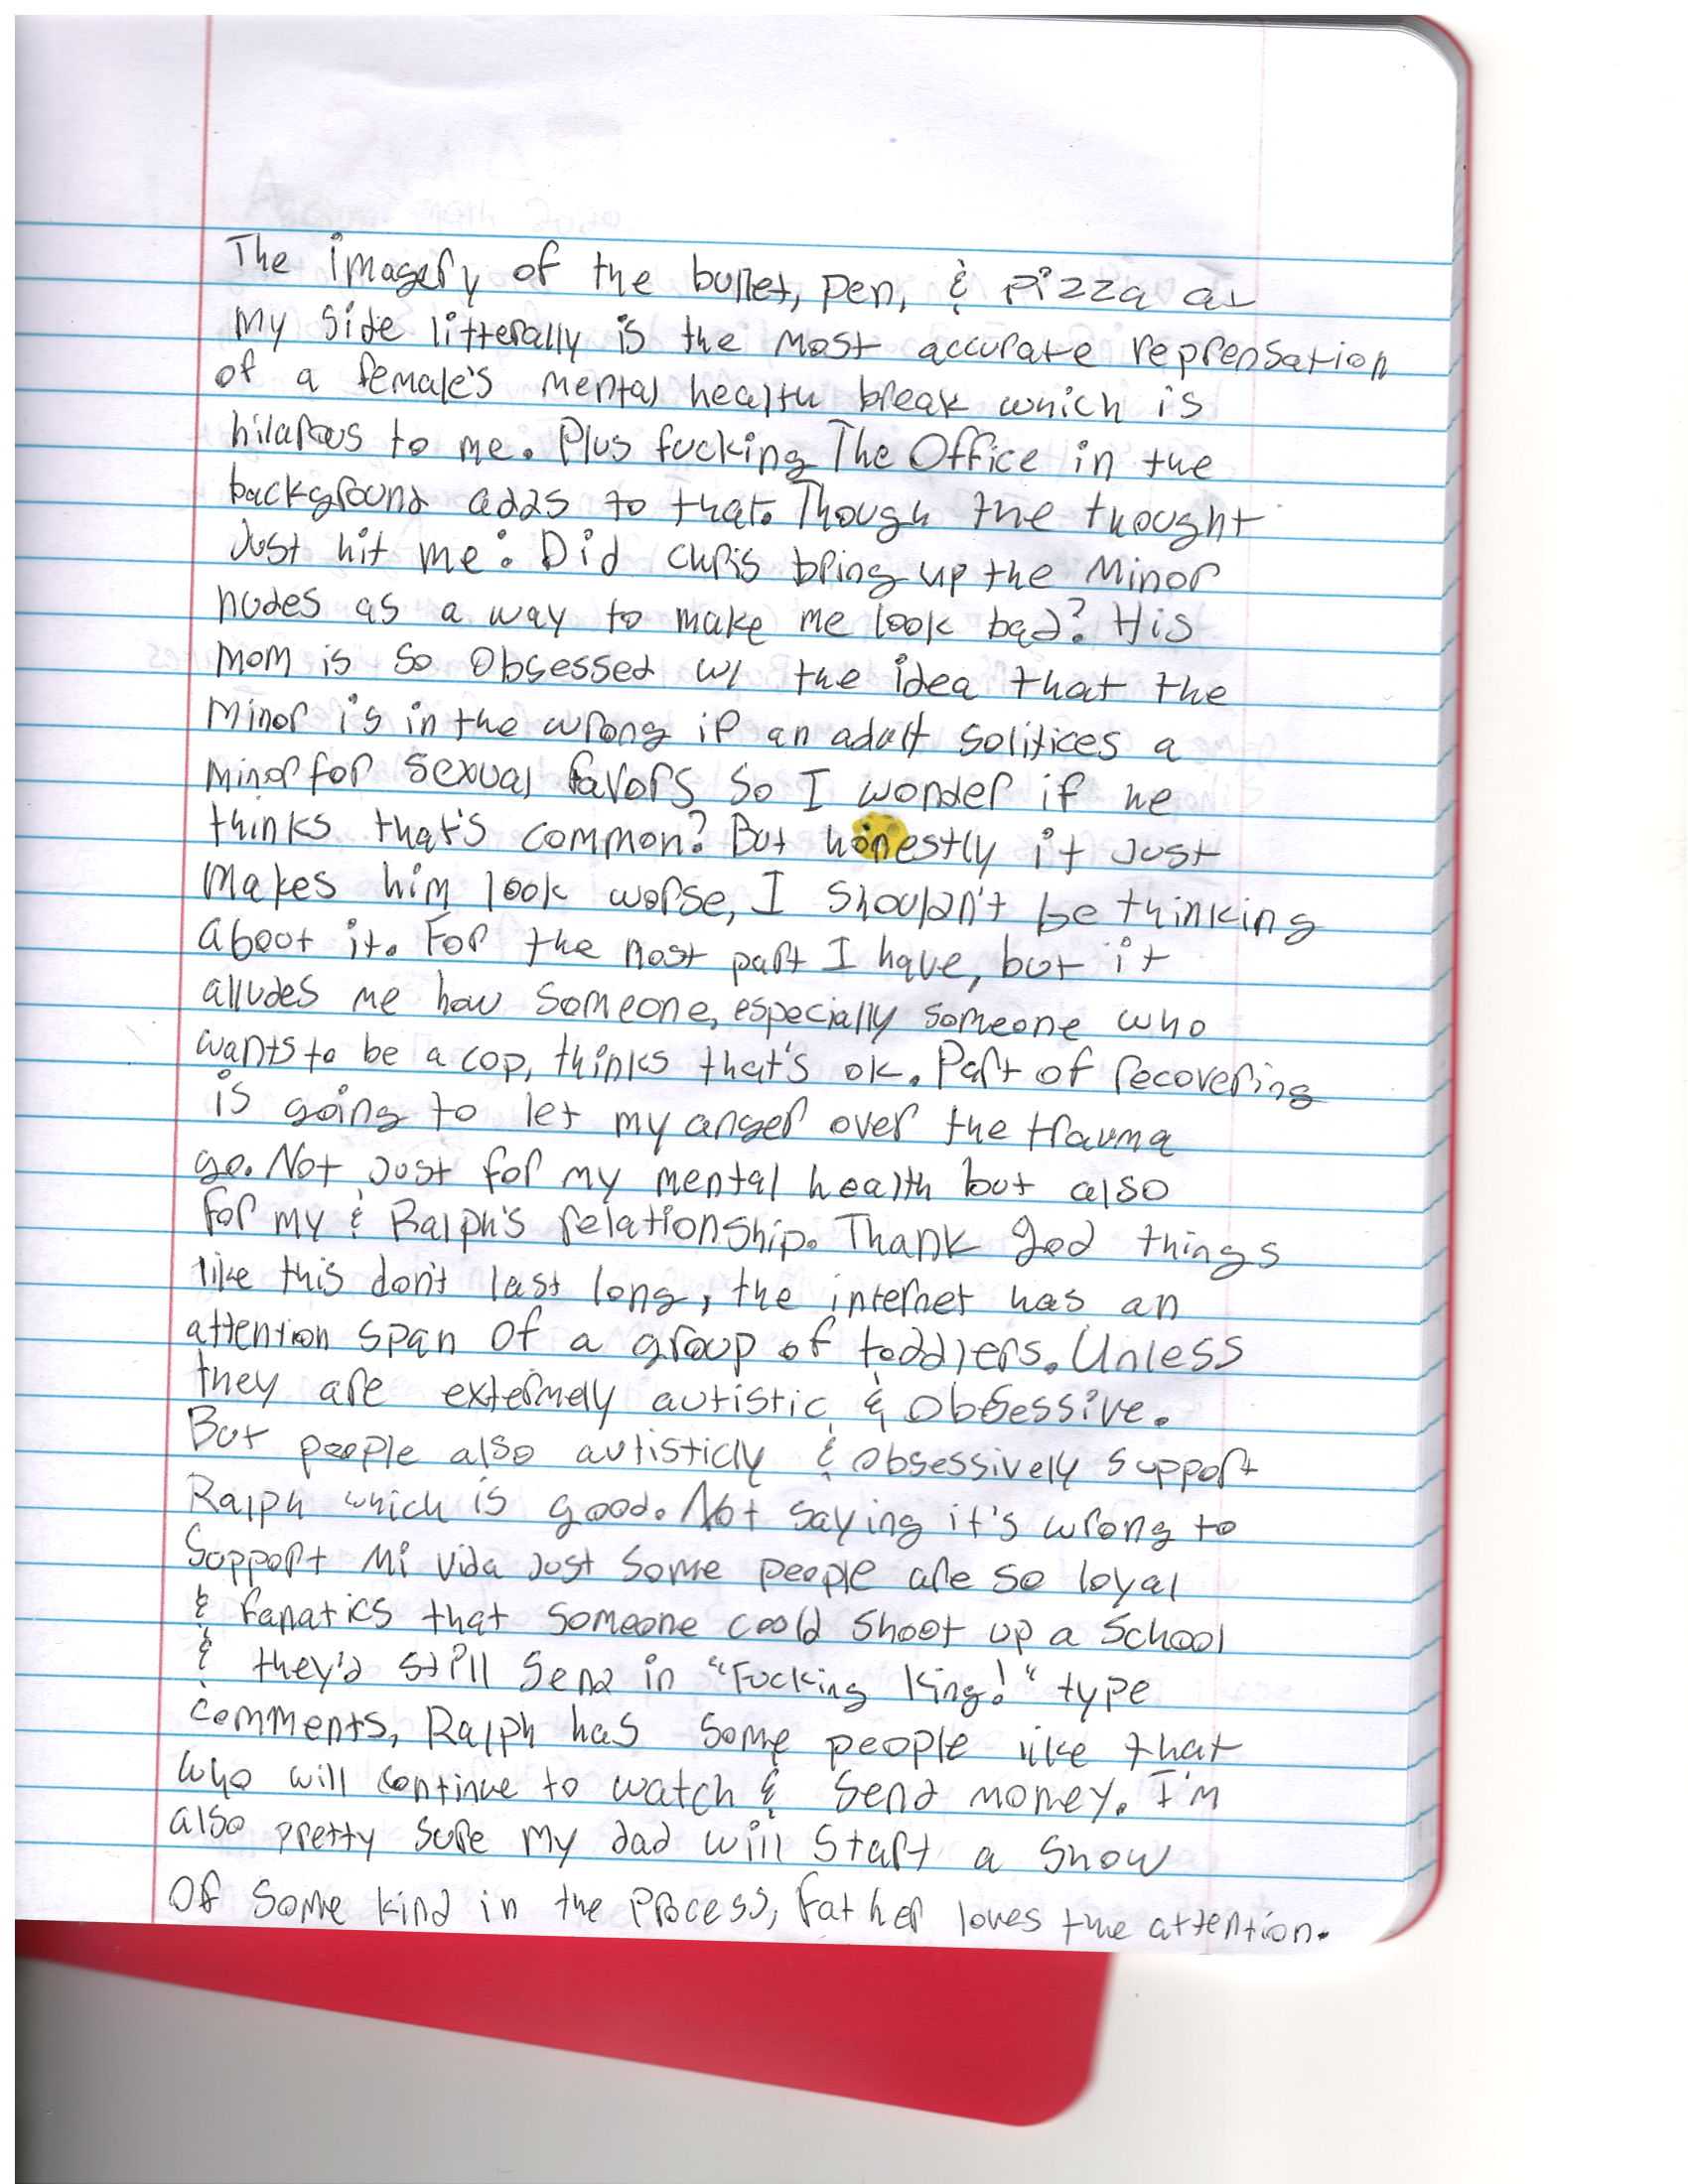 The imagery of the bullet, pen, & pizza at
my side litterally is the most accurate reprensation
of a female's mental health break which is
hilarous to me. Plus fucking The Office in the
background adds to that. Though the thought
Just hit me: Did Chris bring up the Minor
nudes as a way to make me look bad? His
mom is so obsessed w/ the idea that the
minor is in the wrong if an adult solitices a
minor for sexual favors so I wonder if he
thinks that's common? But honestly it just
makes him look worse, I shouldn't be thinking
about it. For the most part I have, but it
alludes me how someone, especially someone who
wants to be a cop, thinks that's ok. Part of recovering
is going to let my anger over the trauma
go. Not Just for my mental health but also
for my & Ralph's relationship. Thank god things
like this don't last long, the internet has an
attention span of a group of toddlers. Unless
they are extermely autistic & obsessive.
But people also autisticly & obsessively support
Ralph which is good. Not saying it's wrong to
Support Mi Vida Just some people are so loyal
& fanatics that someone could shoot up a school
& they'd still send in "Fucking King!" type
comments, Ralph has some people like that
who will continue to watch & send money. I'm
also pretty sure my dad will start a show
of some kind in the process, father loves the attention.